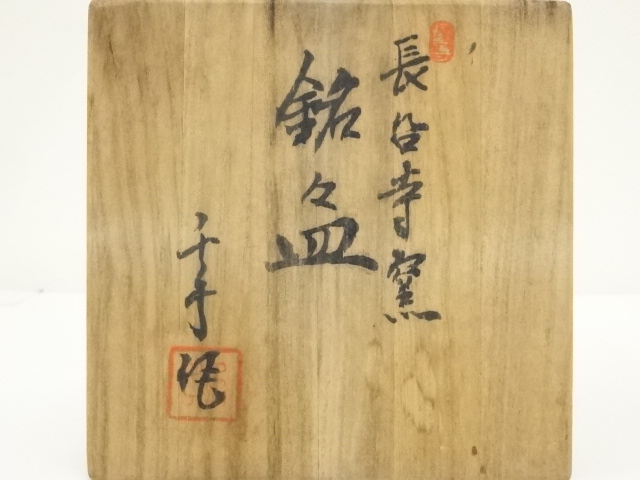 長谷寺窯
銘々皿
千手作